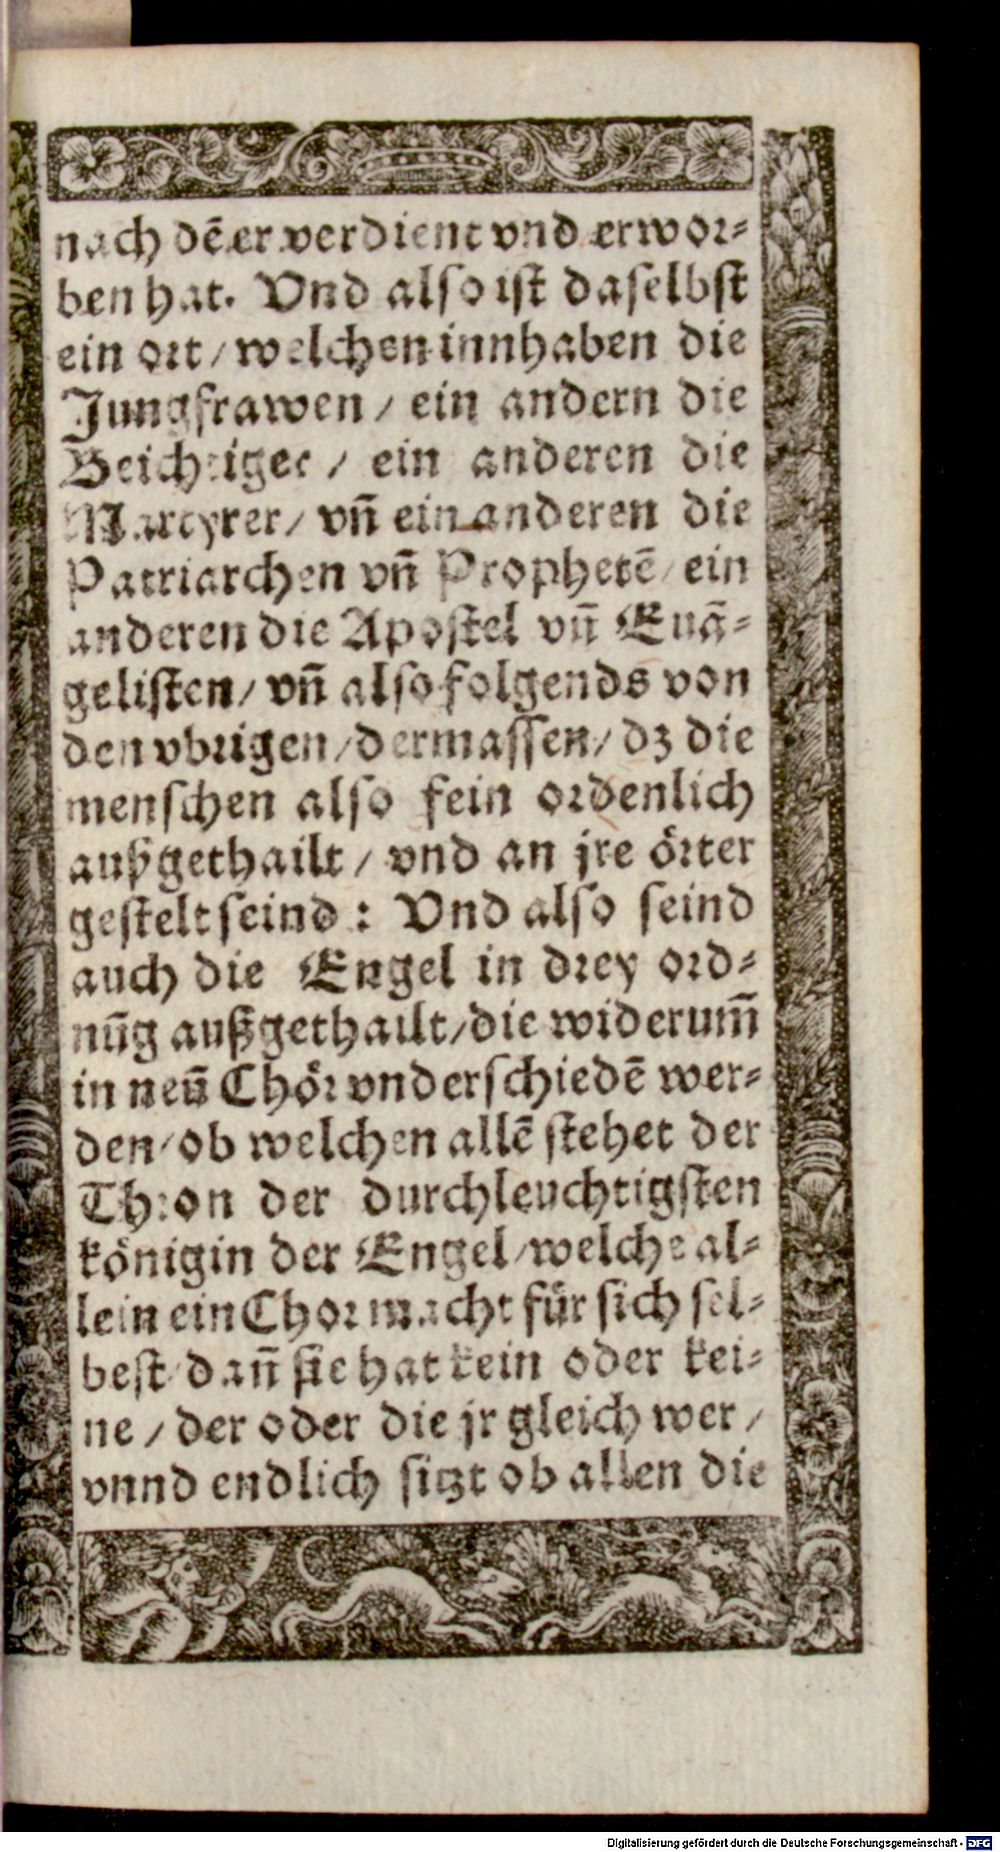 nach dē er verdient vnd erwor-
ben hat. Vnd also ist daselbst
ein ort/ welchen innhaben die
Jungfrawen/ ein andern die
Beichtiger/ ein anderen die
Martyrer/ vn̄ ein anderen die
Patriarchen vn̄ Prophetē/ ein
anderen die Apostel vn̄ Euā-
gelisten/ vn̄ also folgends von
den vbrigen/ dermassen/ dz die
menschen also fein ordenlich
außgethailt/ vnd an jre örter
gestelt seind: Vnd also seind
auch die Engel in drey ord-
nūg außgethailt/ die widerum̄
in neun̄ Chör vnderschiedē wer-
den/ ob welchen allē stehet der
Thron der durchleuchtigsten
königin der Engel/ welche al-
lein ein Chor macht für sich sel-
best/ dan̄ sie hat kein oder kei-
ne/ der oder die jr gleich wer/
vnnd endlich sitzt ob allen die
Digitalisierung gefördert durch die Deutsche Forschungsgemeinschaft - DFG